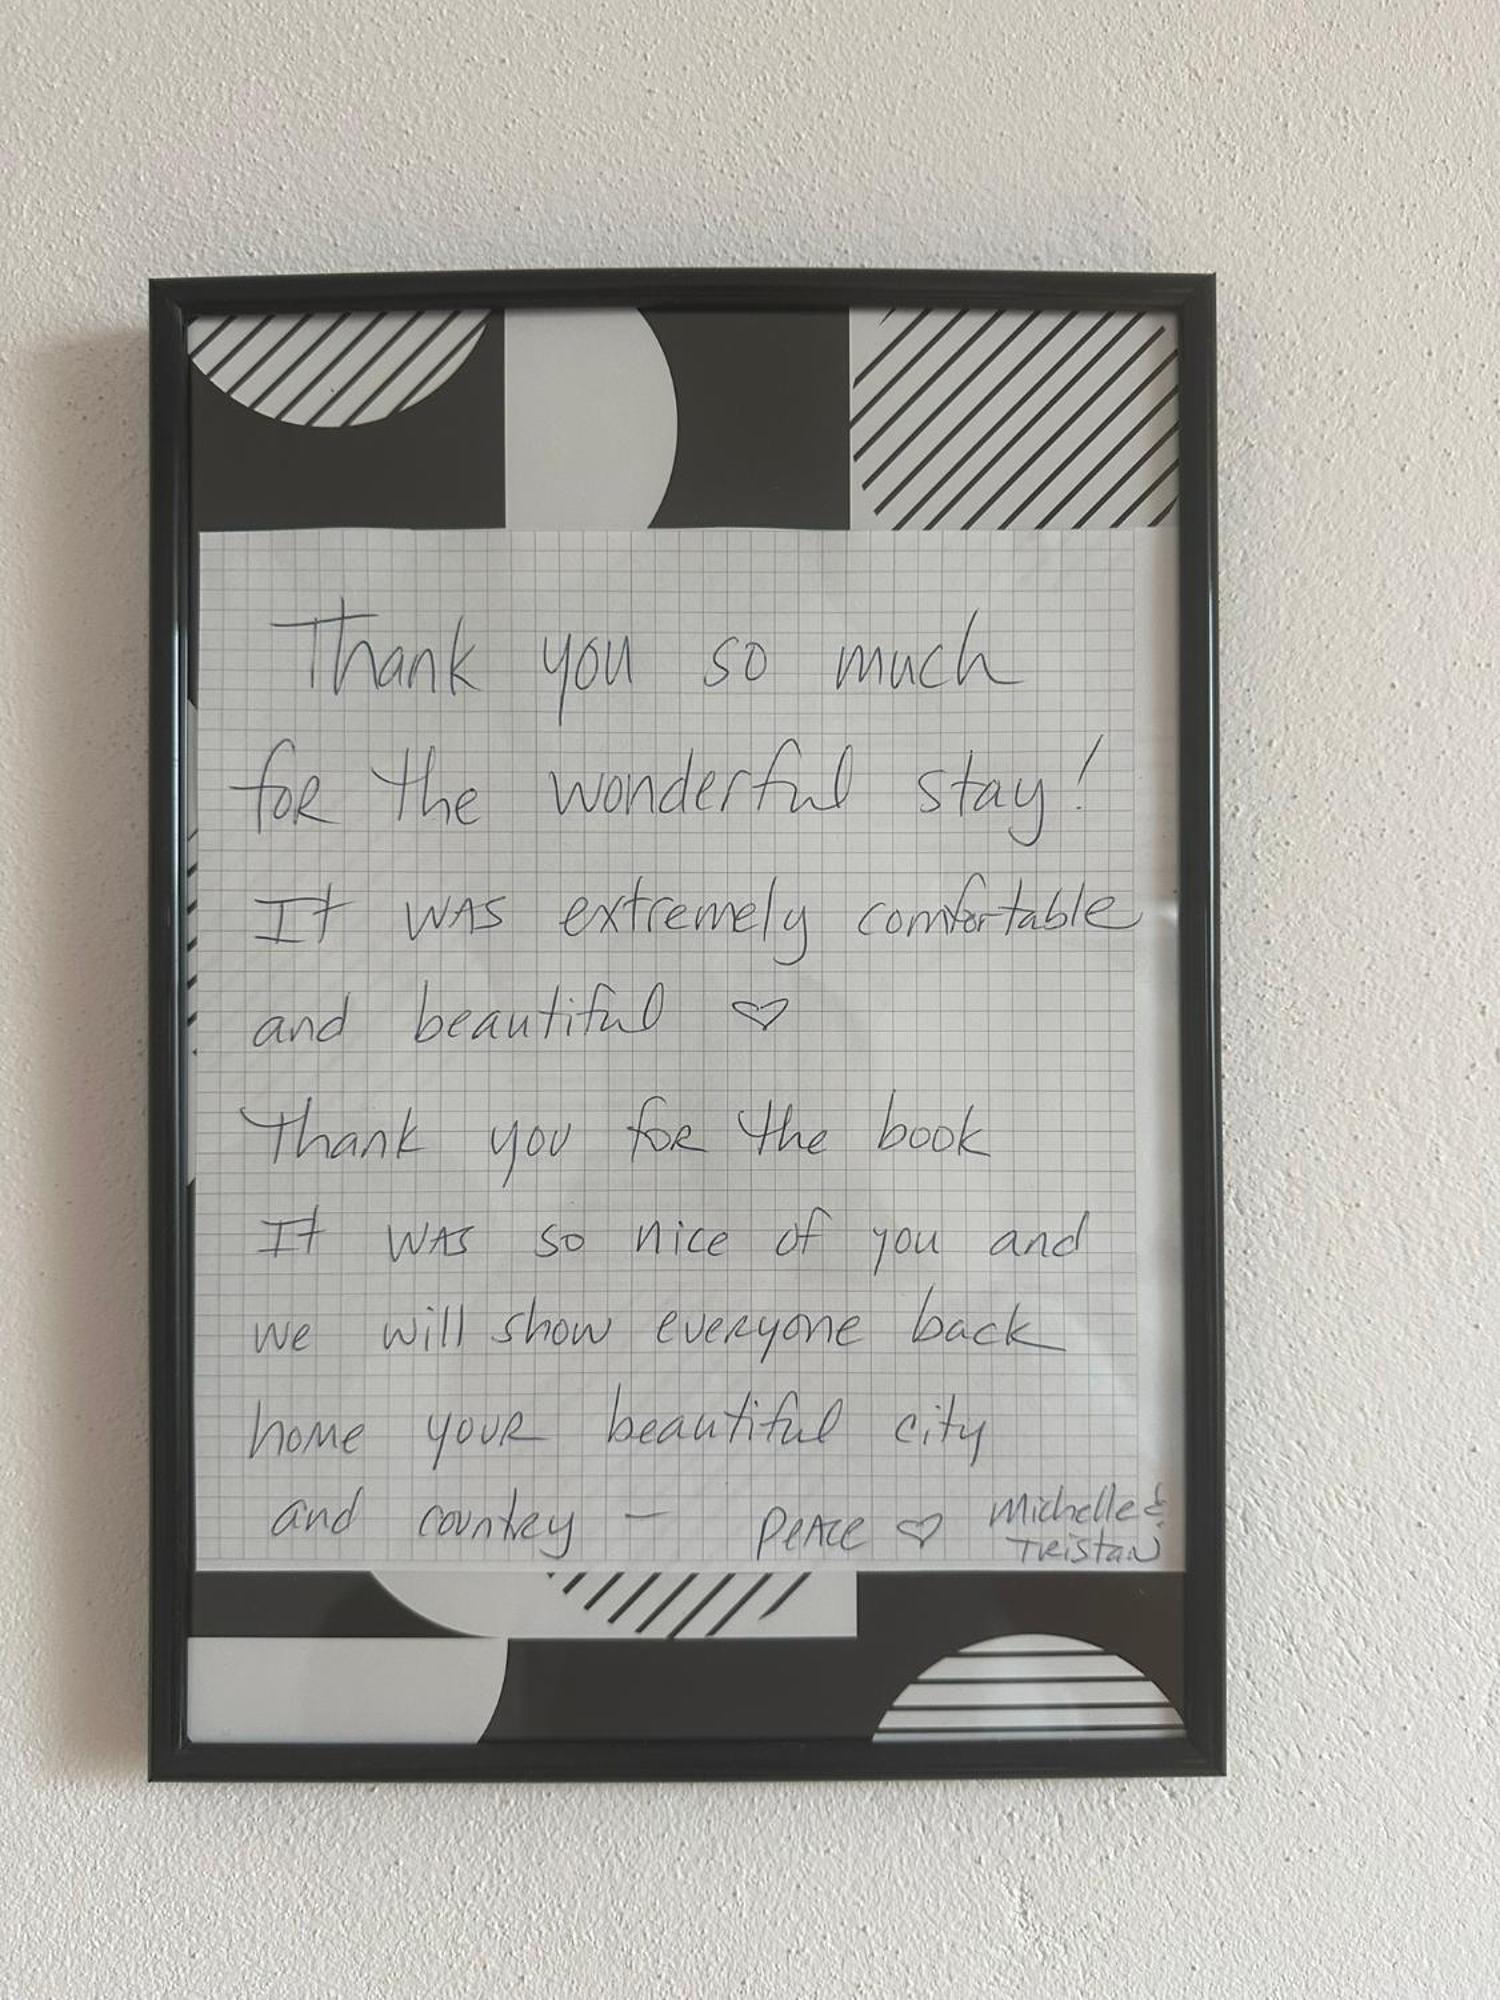 Thank you so much
for the wonderful stay!
It was extremely comfortable
and beautiful ♡
Thank you for the book
It was so nice of you and
we will show everyone back
home your beautiful city
and country – Peace ♡ Michelle &
Tristan